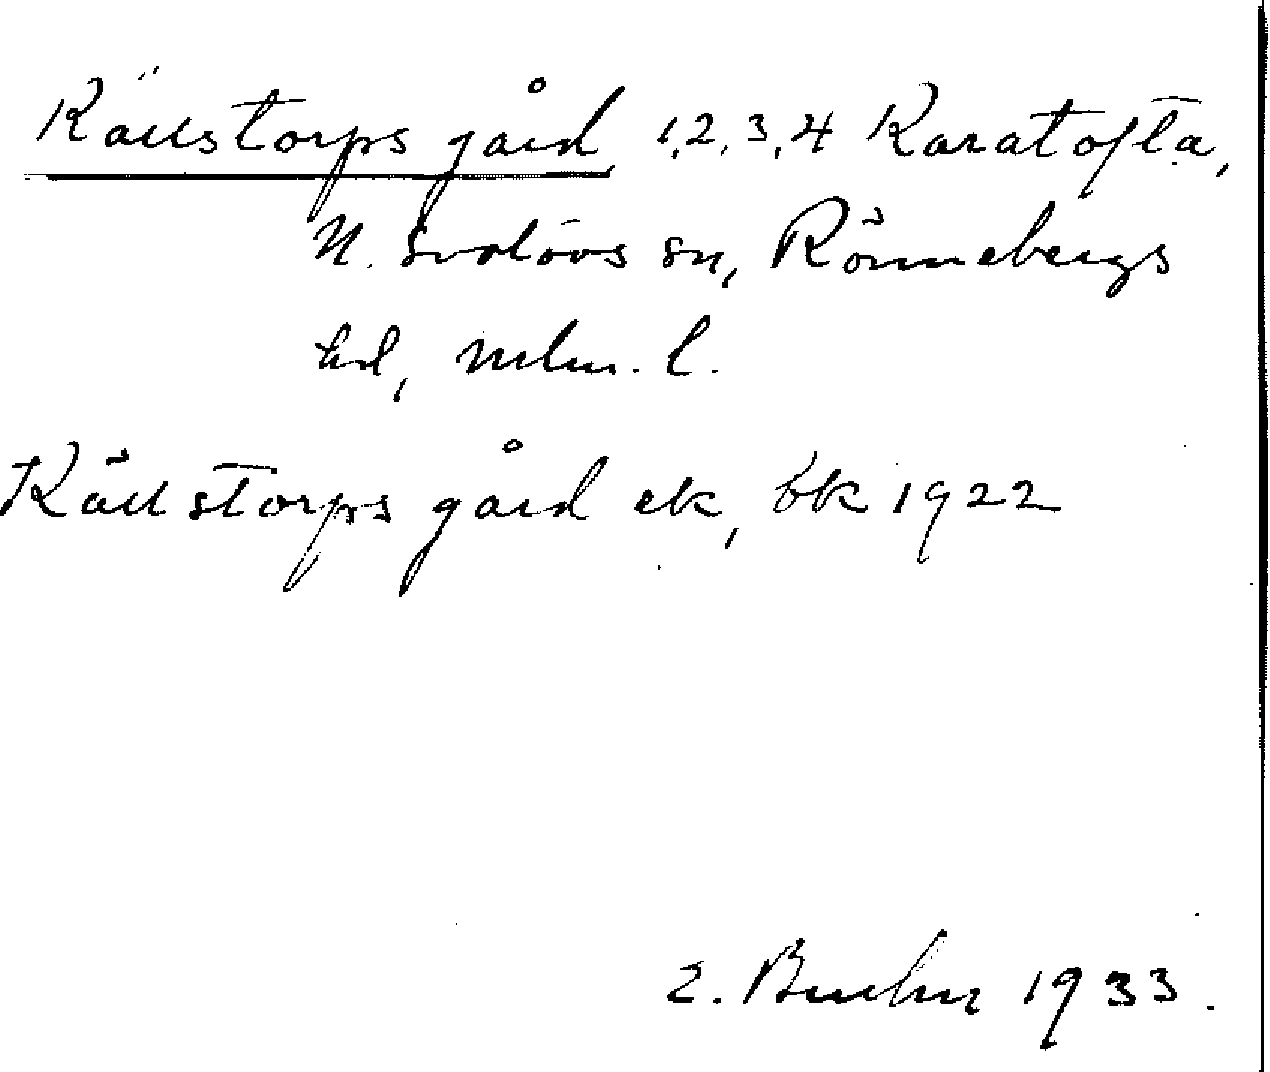 Källstorps gård, 1,2,3,4 Karatofta,
N. Svalövs sn, Rönnebergs
hd, Mlm. l.
Källstorps gård ek, bk 1922
1933.